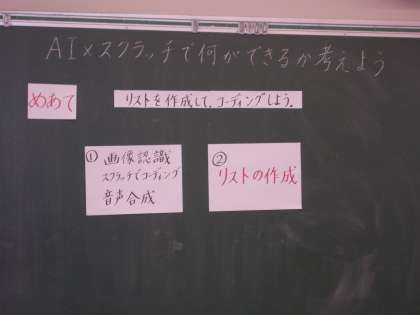 AI×スクラッチで何ができるか考えよう
めあて
リストを作成して、コーディングしよう。
① 画像認識
スクラッチでコーディング
音声合成
②
リストの作成